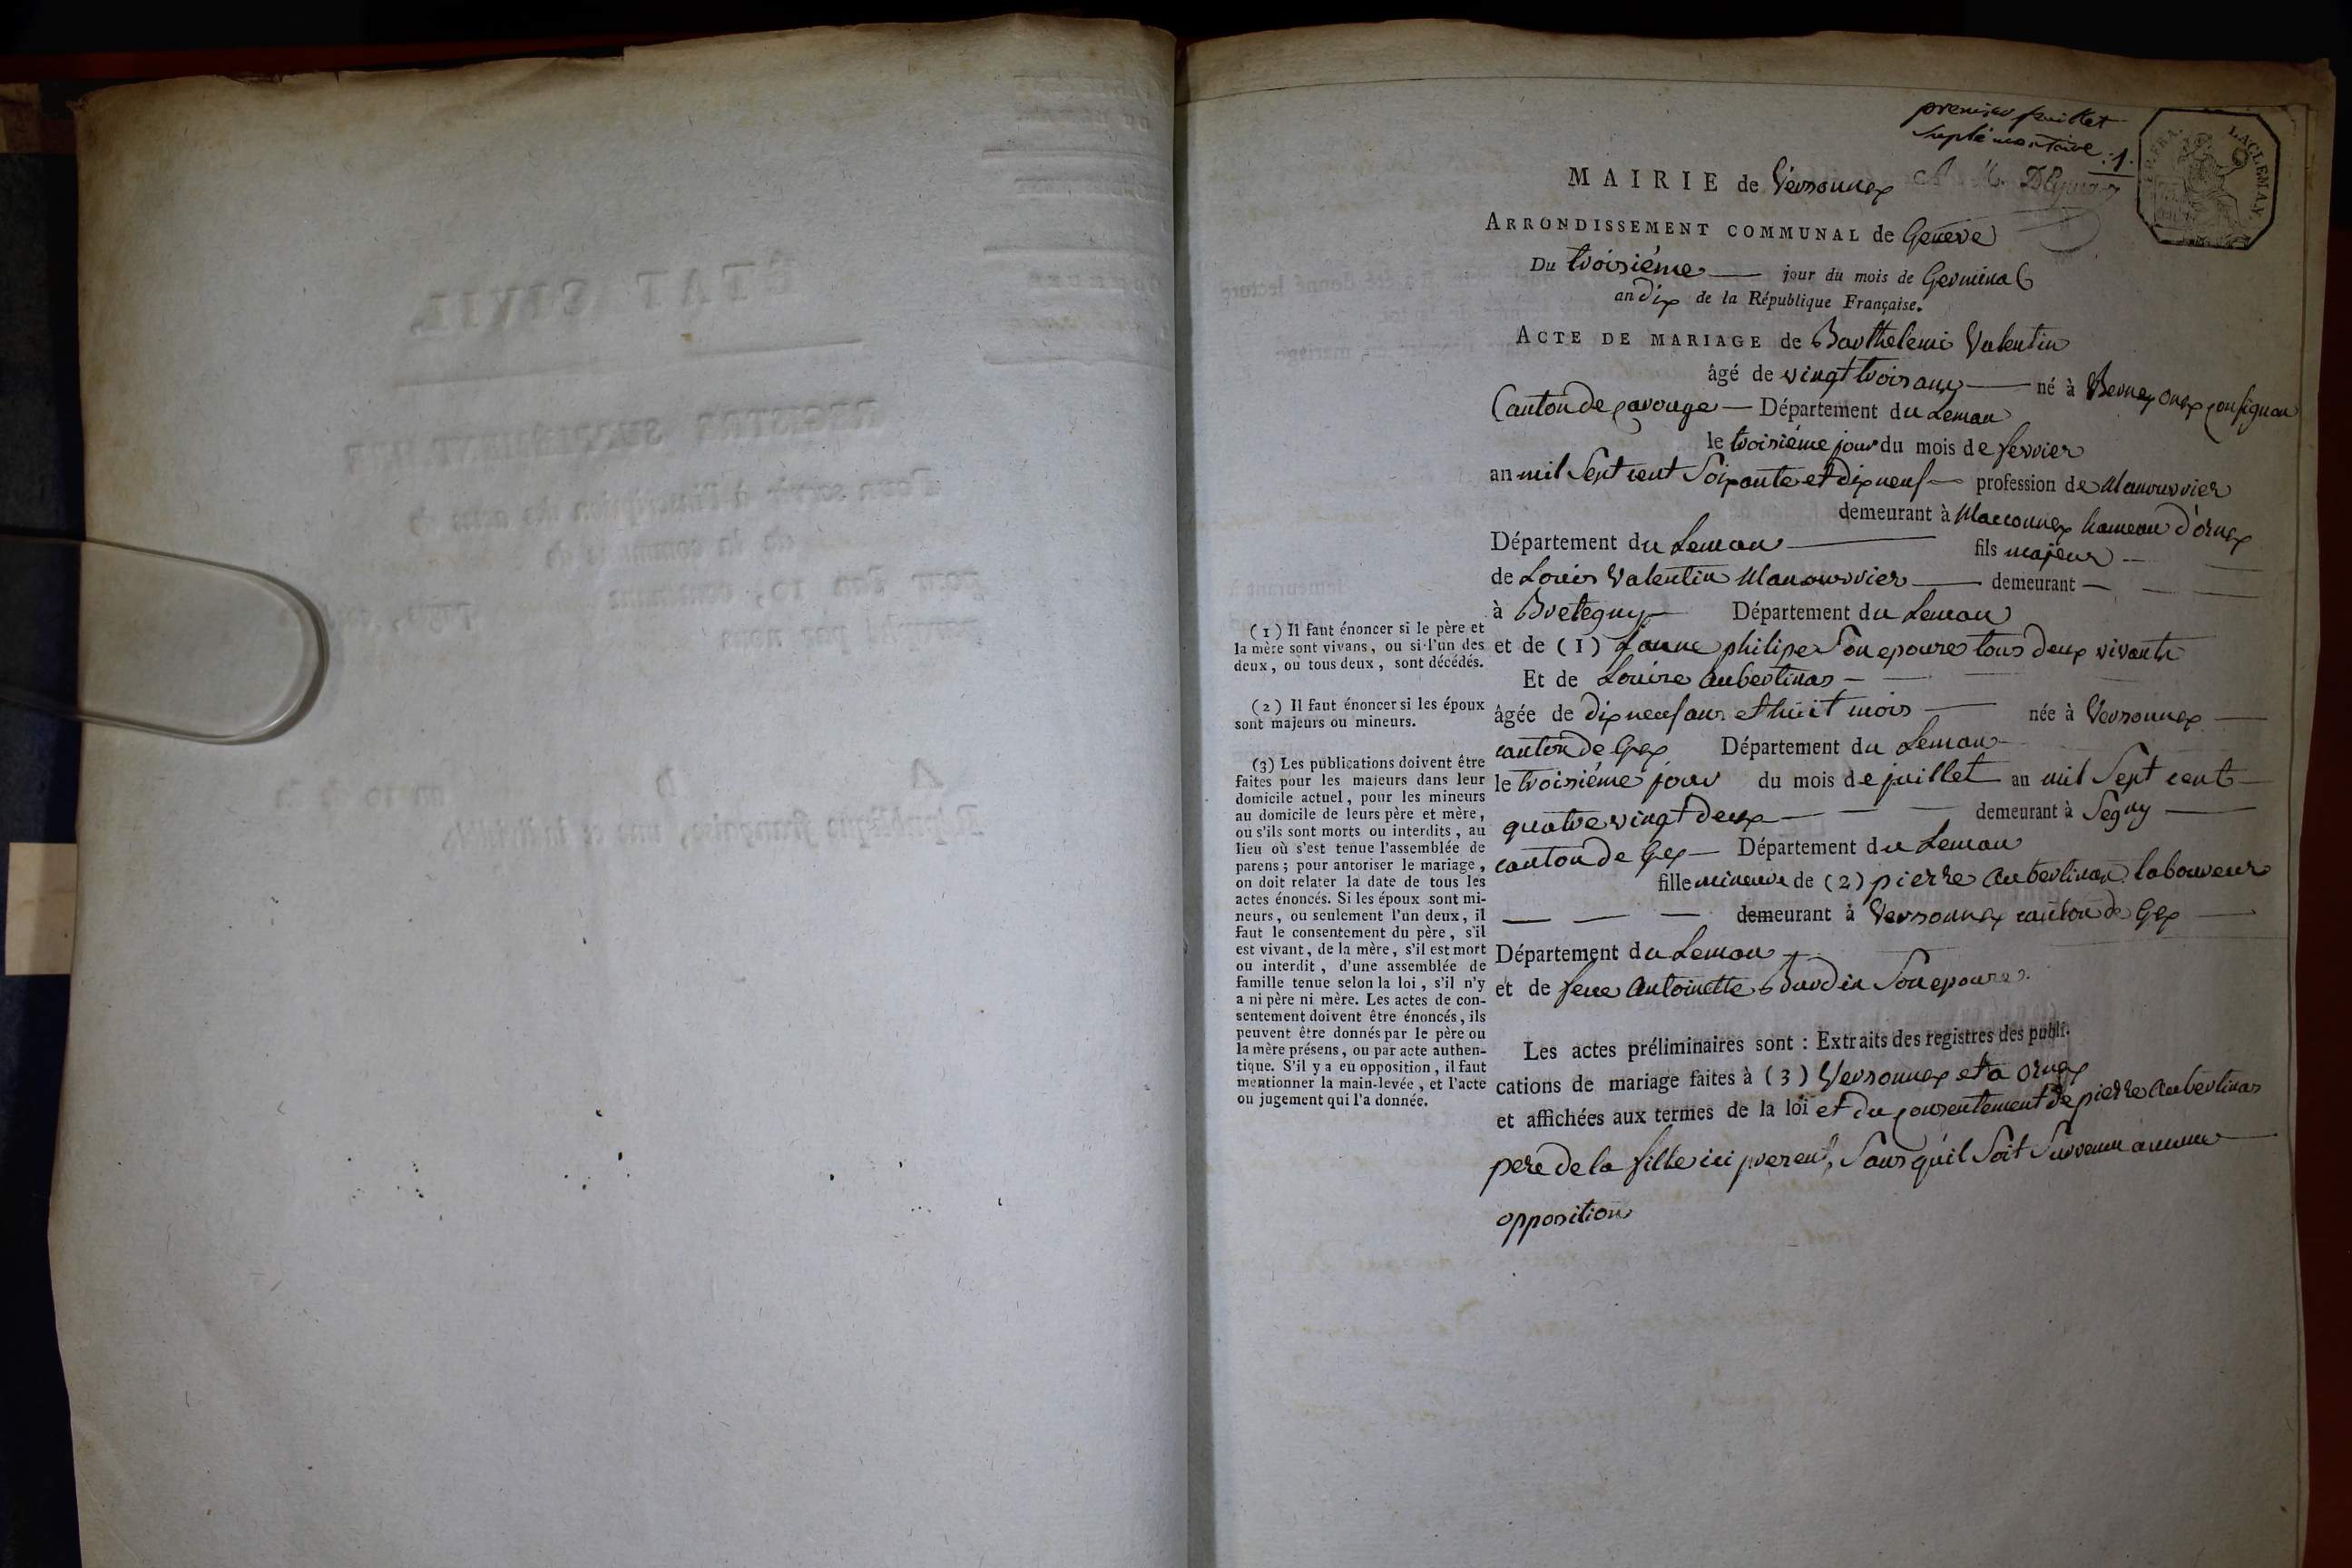 premier feuillet
suplémentaire .1.
LACLEMAY.
MAIRIE de Versonnex
ARRONDISSEMENT COMMUNAL de Geneve
Du troisiéme jour du mois de Germinal
an dix de la République Française.
ACTE DE MARIAGE de Barthelemi Valentin
âgé de vingt trois ans né à Bernex onex confignon
Canton de carouge Département du Leman
le troisiéme jour du mois de fevrier
an mil Sept cent Soixante et dix neuf profession de Manouvrier
demeurant à Maconnex hameau d'ornex
Département du Leman fils majeur
de Loüis Valentin Manouvrier demeurant
à Bretegny Département du Leman
et de (1) Janne philipe Son epouse tous deux vivants
Et de Loüise Aubertinas
âgée de dix neuf ans et huit mois née à Versonnex
canton de Gex Département du Leman
le troisiéme jour du mois de juillet an mil Sept cent
quatre vingt deux demeurant à Segny
canton de Gex Département du Leman
fille mineure de (2) pierre Aubertinas laboureur
demeurant à Versonnex canton de Gex
Département du Leman
et de feue Antoinette Son epouse.
Les actes préliminaires sont : Extraits des registres des publi-
cations de mariage faites à (3) Versonnex et à ornex
et affichées aux termes de la loi et du consentement de pierre Aubertinas
pere de la fille ici present, Sans qu'il Soit Survenu aucune
opposition
(1) Il faut énoncer si le père et
la mère sont vivans, ou si l'un des
deux, ou tous deux, sont décédés.
(2) Il faut énoncer si les époux
sont majeurs ou mineurs.
(3) Les publications doivent être
faites pour les majeurs dans leur
domicile actuel, pour les mineurs
au domicile de leurs père et mère,
ou s'ils sont morts ou interdits, au
lieu où s'est tenue l'assemblée de
parens ; pour antoriser le mariage,
on doit relater la date de tous les
actes énoncés. Si les époux sont mi-
neurs, ou seulement l'un deux, il
faut le consentement du père, s'il
est vivant, de la mère, s'il est mort
ou interdit, d'une assemblée de
famille tenue selon la loi, s'il n'y
a ni père ni mère. Les actes de con-
sentement doivent être énoncés, ils
peuvent être donnés par le père ou
la mère présens, ou par acte authen-
tique. S'il y a eu opposition, il faut
mentionner la main-levée, et l'acte
ou jugement qui l'a donnée.